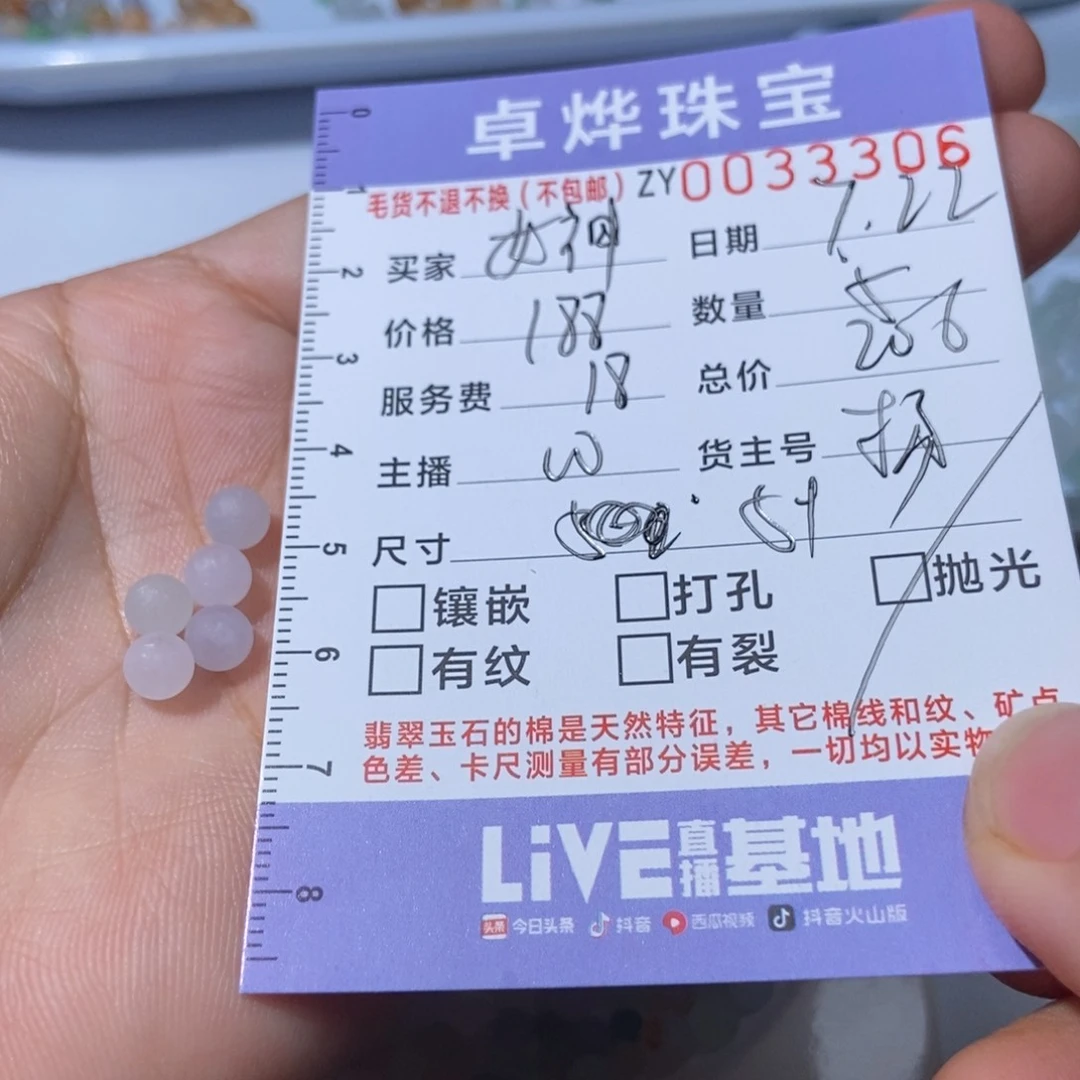 卓烨珠宝
毛货不退不换（不包邮）ZY0033306
买家 女神 日期 7.22
价格 188 数量 5
服务费 18 总价 206
主播 W 货主号
尺寸
镶嵌 打孔 抛光
有纹 有裂
翡翠玉石的棉是天然特征，其它棉线和纹、矿点
色差、卡尺测量有部分误差，一切均以实物
LiVE直播基地
头条 今日头条 抖音 西瓜视频 抖音火山版
0
1
2
3
4
5
6
7
8